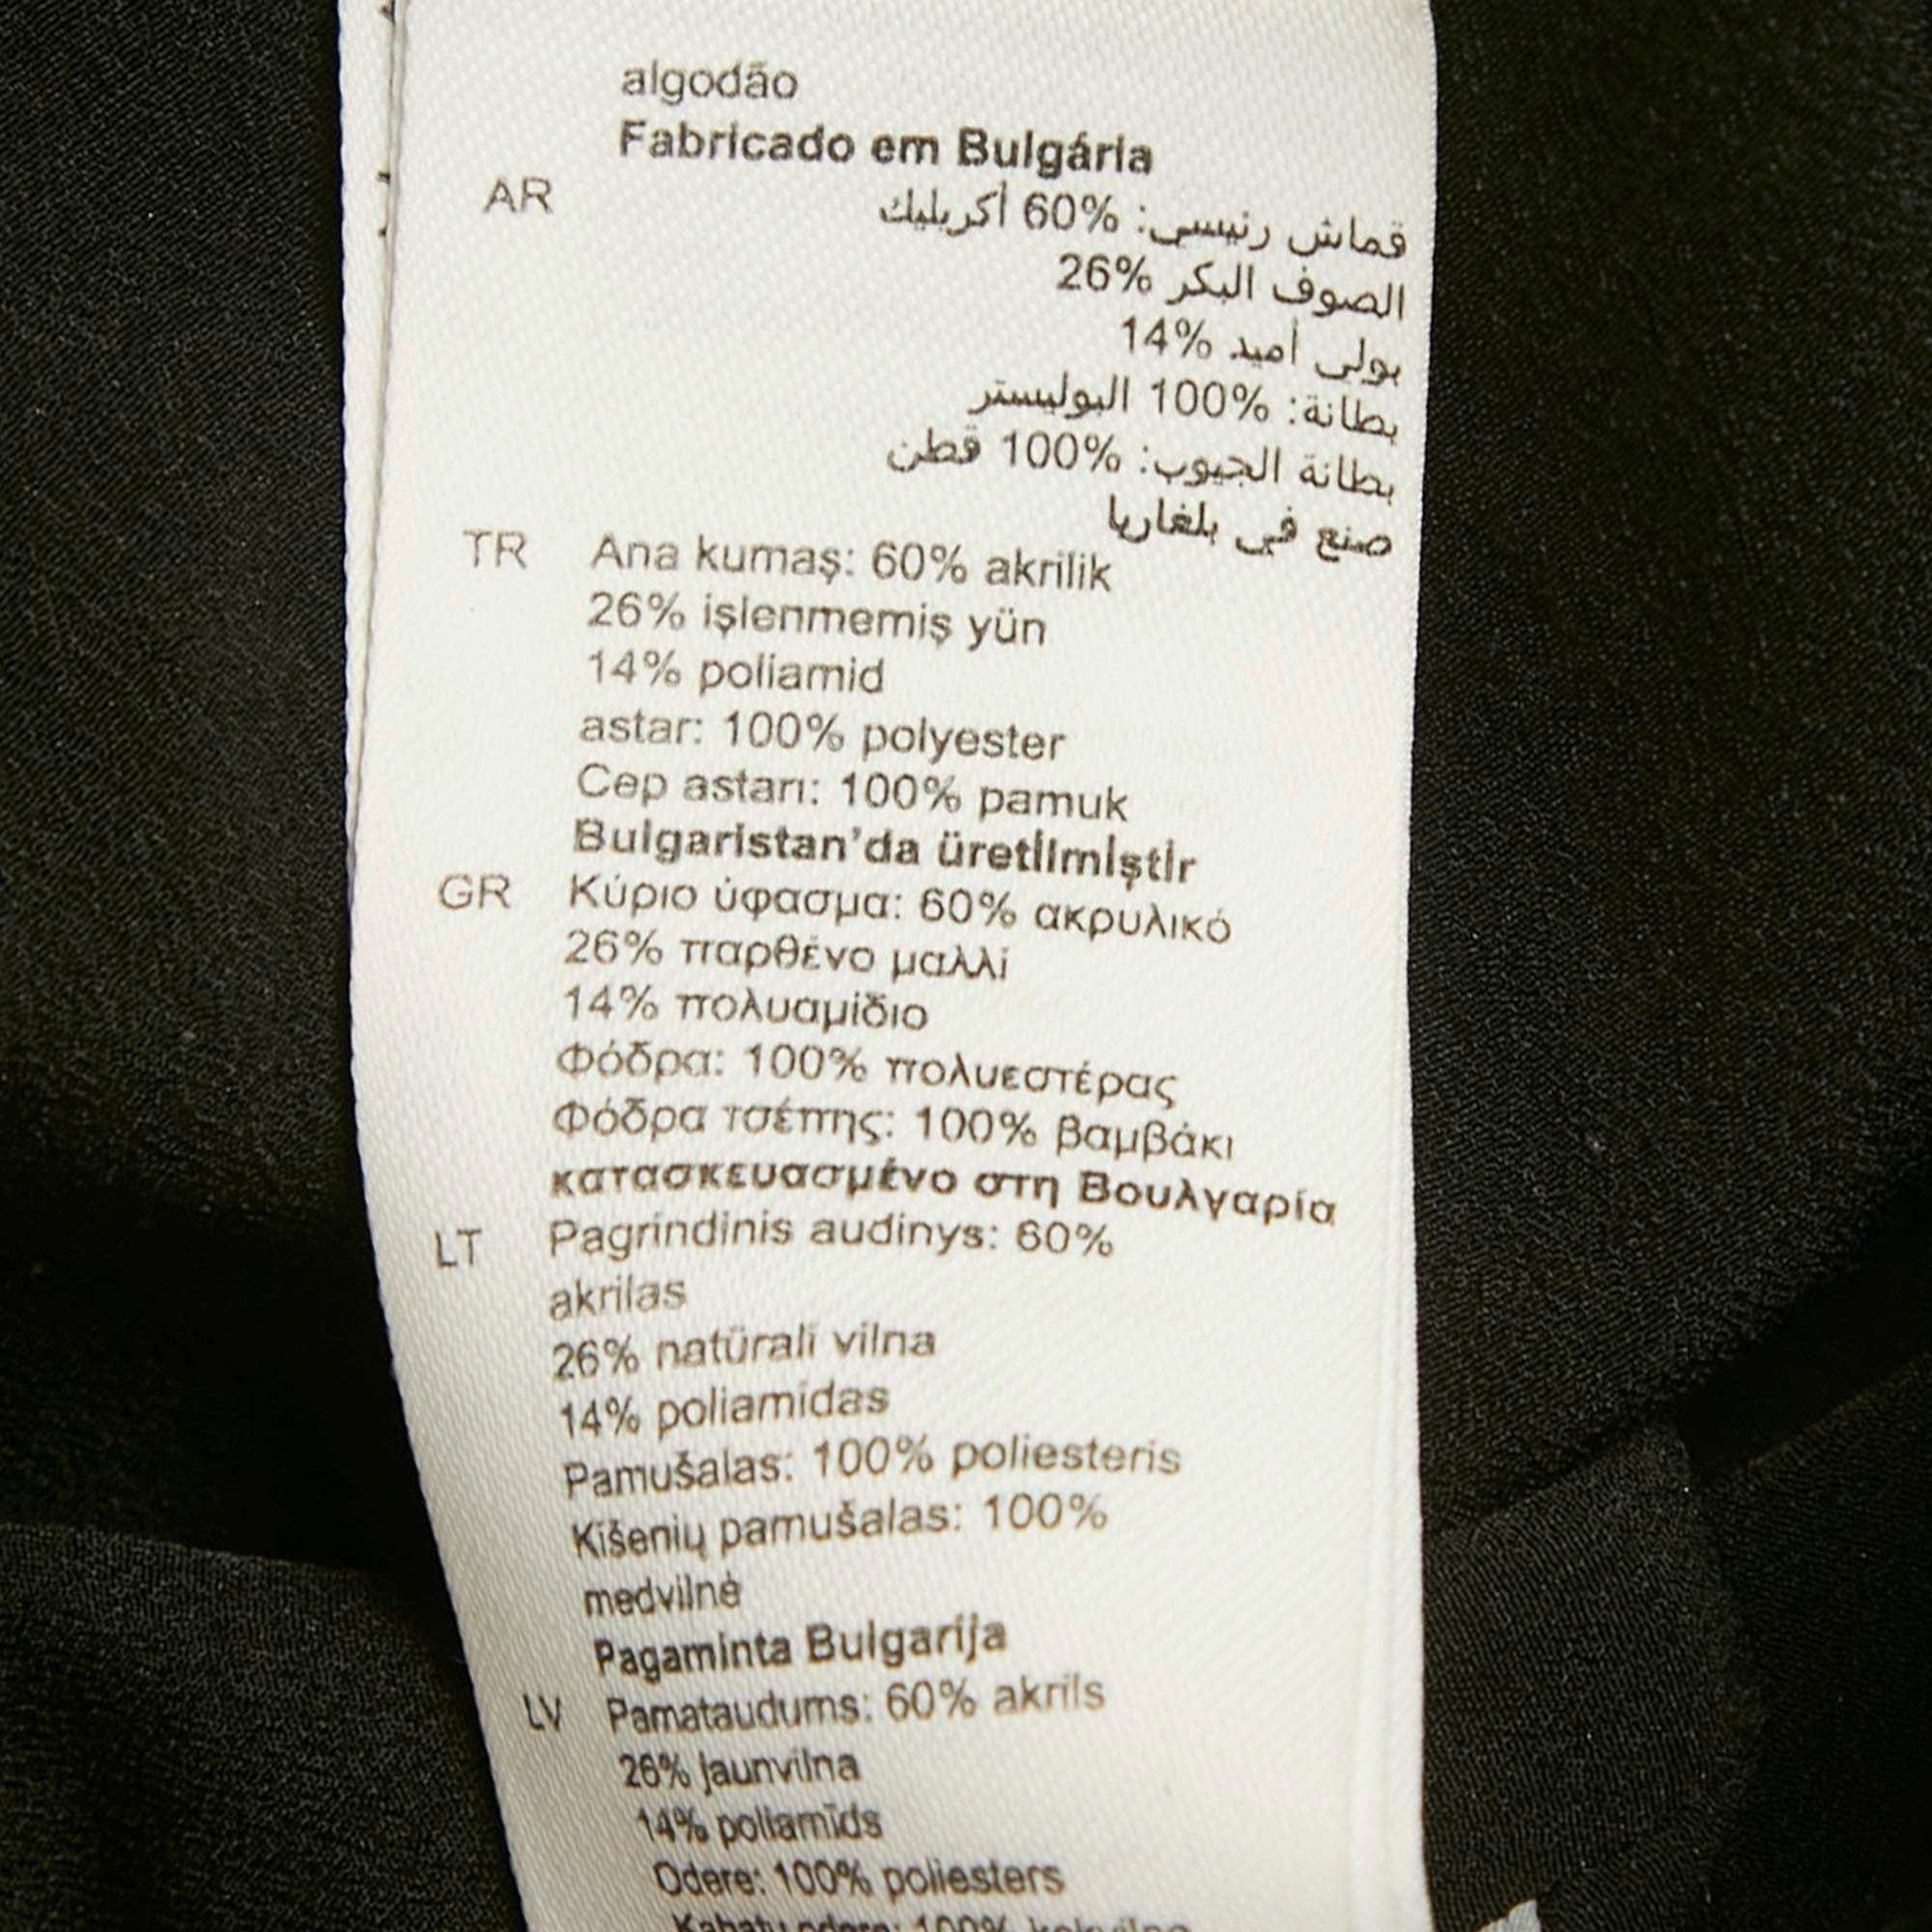 algodão
Fabricado em Bulgária
AR
قماش رئيسي: 60% أكريليك
الصوف البكر 26%
بولي أميد 14%
بطانة: 100% البوليستر
بطانة الجيوب: 100% قطن
صنع في بلغاريا
TR Ana kumaş: 60% akrilik
26% işlenmemiş yün
14% poliamid
astar: 100% polyester
Cep astarı: 100% pamuk
Bulgaristan'da üretilmiştir
GR Κύριο ύφασμα: 60% ακρυλικό
26% παρθένο μαλλί
14% πολυαμίδιο
Φόδρα: 100% πολυεστέρας
Φόδρα τσέπης: 100% βαμβάκι
κατασκευασμένο στη Βουλγαρία
LT Pagrindinis audinys: 60%
akrilas
26% natūrali vilna
14% poliamidas
Pamušalas: 100% poliesteris
Kišenių pamušalas: 100%
medvilnė
Pagaminta Bulgarija
LV Pamataudums: 60% akrils
26% jaunvilna
14% poliamīds
Odere: 100% poliesters
100%